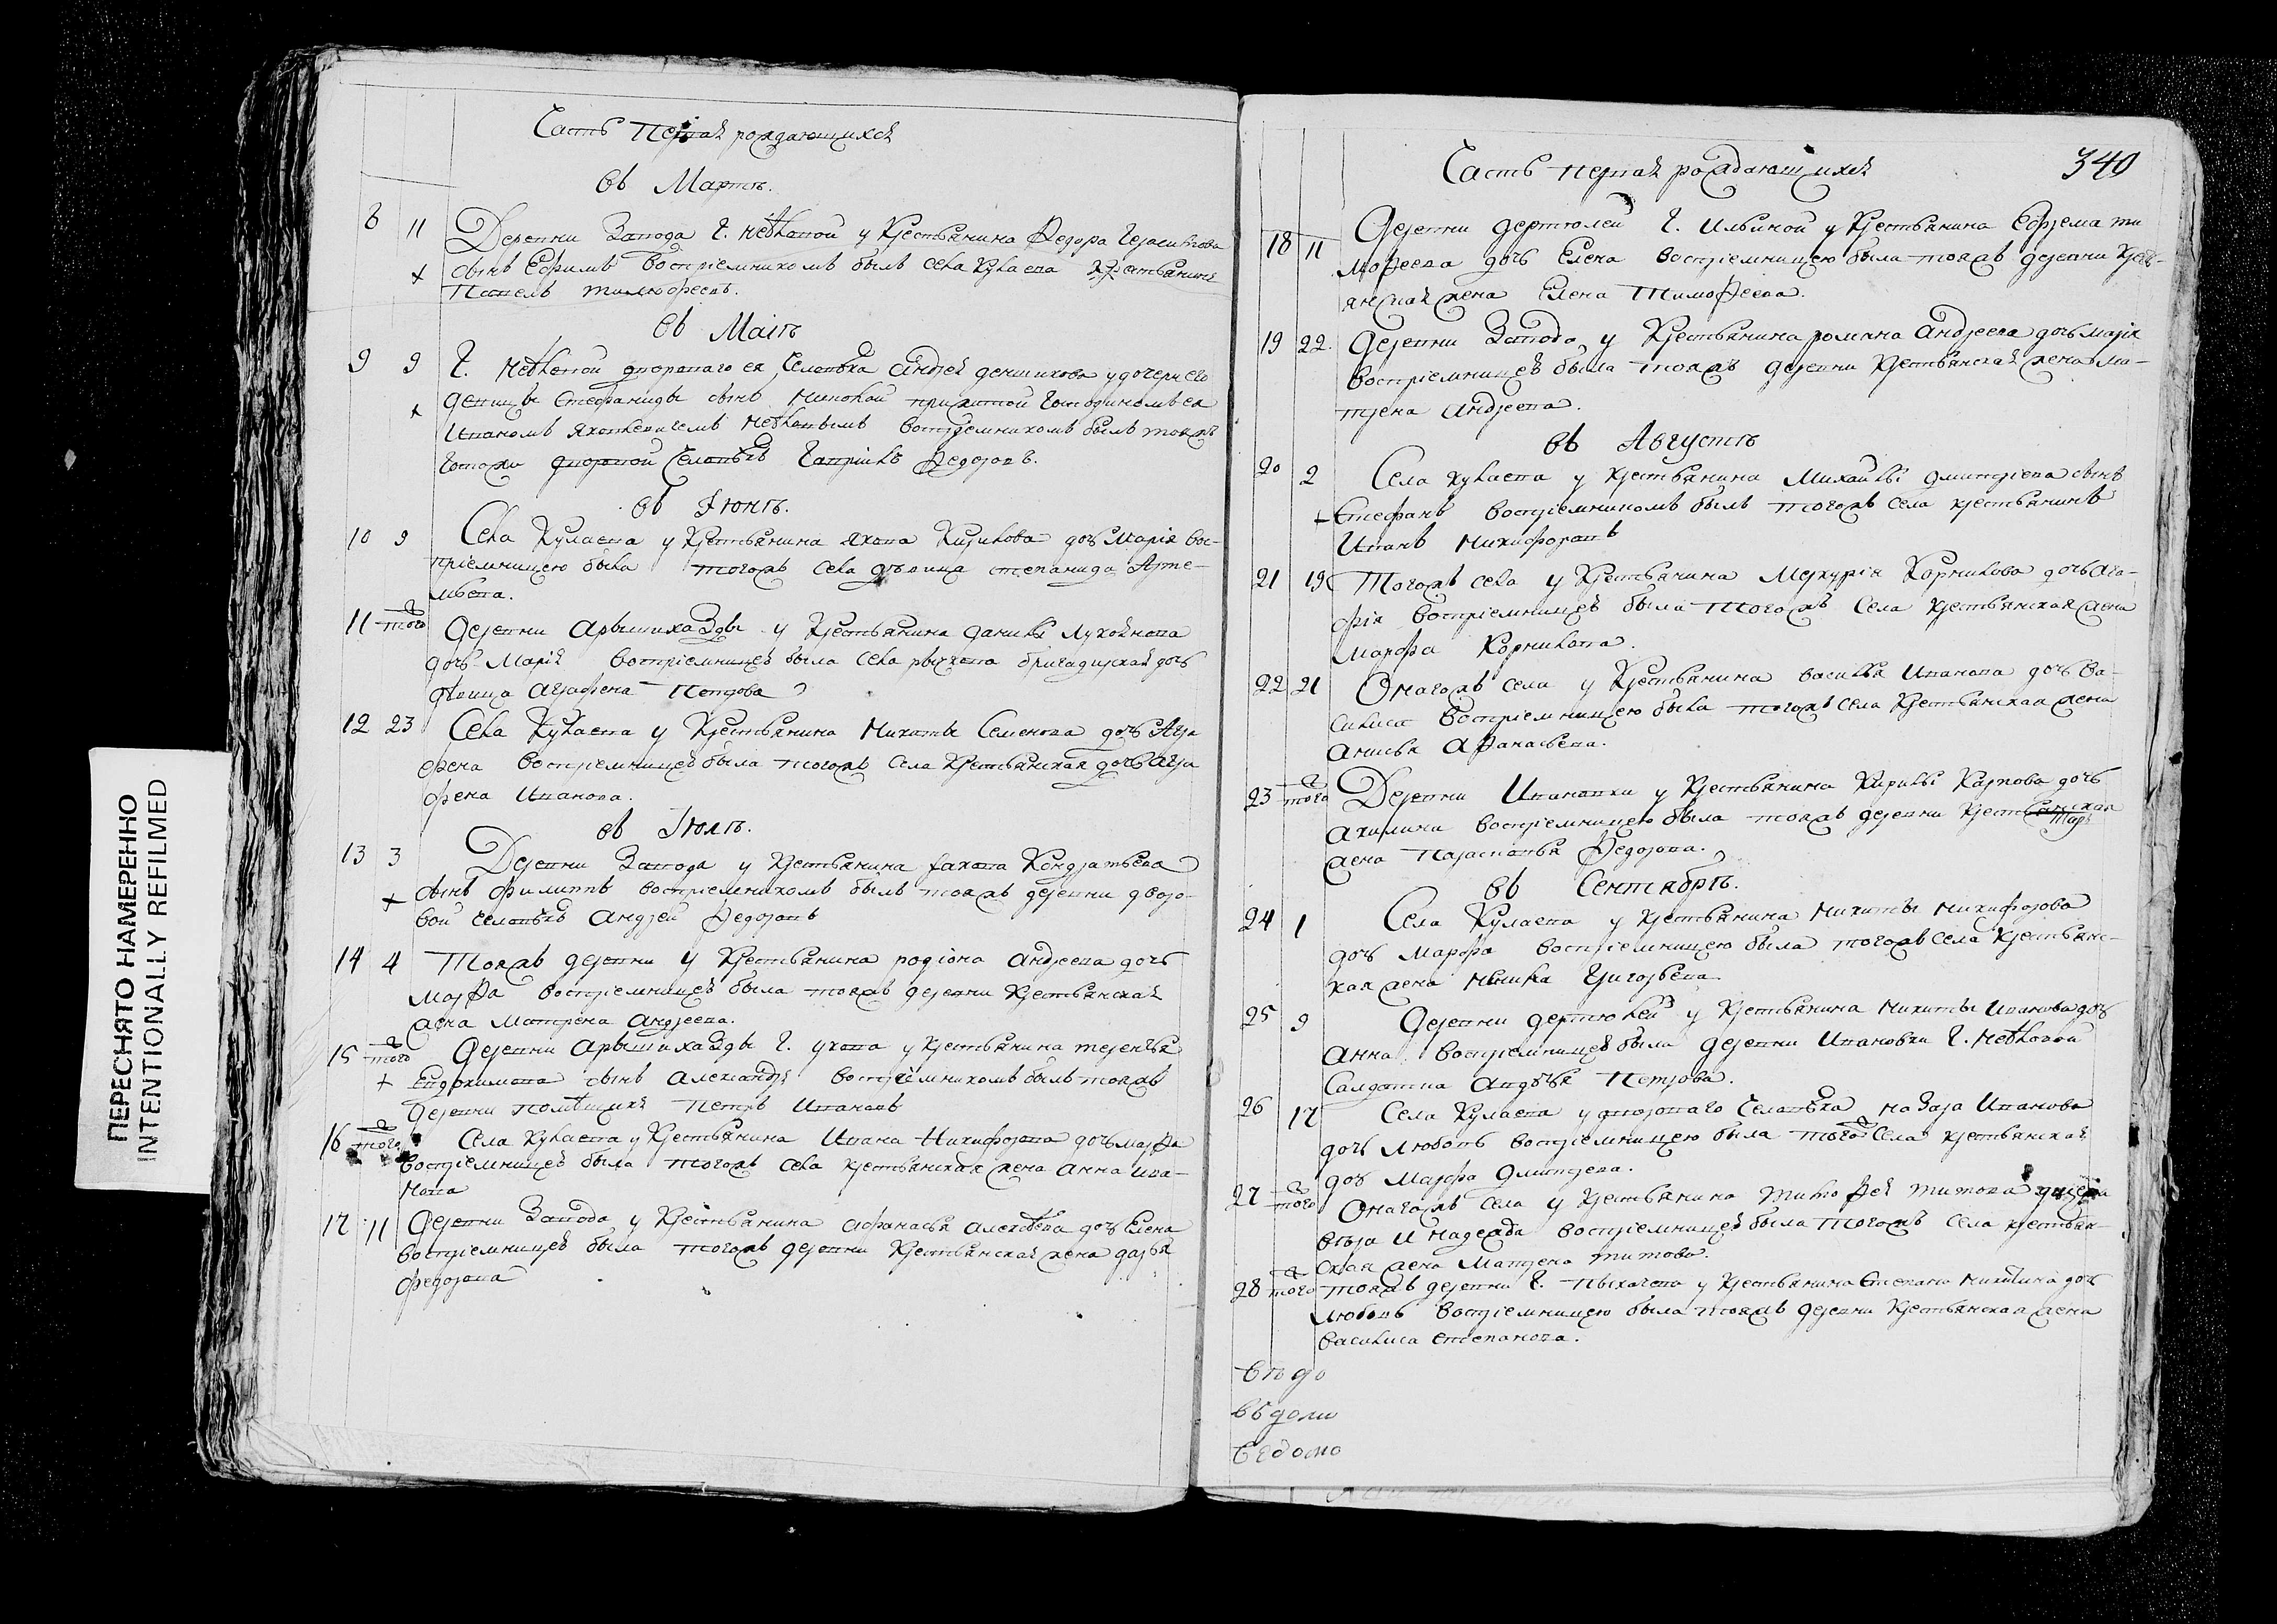 ПЕРЕСНЯТО НАМЕРЕННО
INTENTIONALLY REFILMED
Часть первая рождающихся
въ Мартѣ.
8 11 Деревни Завода Г. Неѣловой у крестьянина Федора Герасимова
+ сынъ Ефимъ воспрiемникомъ былъ села Кулаева крестьянинъ
Павелъ Тимофеевъ.
въ Маiѣ
9 9 Г. Неѣловой двороваго ея человѣка Андрея денщикова у дочери его
девицы Стефаниды сынъ Николай прижитой господиномъ ея
+ Иваномъ Яковлевичемъ Неѣловымъ воспрiемникомъ былъ тояжъ
госпожи дворовой человѣкъ Гаврiилъ Федоровъ.
въ Iюнѣ.
10 9 Села Кулаева у крестьянина Якова Кирилова дочь Марiя вос-
прiемницею была тогожъ села дѣвица Степанида Арте-
мьева.
11 того Деревни Арышихазды у крестьянина Данилы Лукоянова
дочь Марiя воспрiемницею была села бригадирская дочь
дѣвица Аграфена
12 23 Села Кулаева у крестьянина Никиты Семенова дочь Агра
фена воспрiемницею была тогожъ села крестьянская дочь Агра
фена Иванова.
въ Iюлѣ.
13 3 Деревни Завода у крестьянина Якова Кондратьева
+ сынъ Филиппъ воспрiемникомъ былъ тояжъ деревни дворо-
вой человѣкъ Андрей Федоровъ
14 4 Тояжъ деревни у крестьянина Родiона Андреева дочь
Марфа воспрiемницею была тояжъ деревни крестьянская
жена Матрена Андреева.
15 того Деревни Арышихазды Г. у крестьянина Терентья
+ Евдокимова сынъ Александръ воспрiемникомъ былъ тояжъ
деревни помѣщикъ Петръ Ивановъ
16 того Села Кулаева у крестьянина Ивана Никифорова дочь Марфа
воспрiемницею была тогожъ села крестьянская жена Анна Ива-
нова
17 11 Деревни Завода у крестьянина Афанасья Алексѣева дочь Елена
воспрiемницею была тогожъ деревни крестьянская жена Дарья
Федорова
Часть первая рождающихся 340
18 11 Деревни Дертюлей Г. Ильиной у крестьянина Ефрема Ти
мофеева дочь Елена воспрiемницею была тояжъ деревни крест-
янская жена Елена Тимофеева.
19 22. Деревни Завода у крестьянина Романа Андреева дочь Марiя
воспрiемницею была тояжъ деревни крестьянская жена Ма-
трена Андреева.
въ Августѣ
20 2 Села Кулаева у крестьянина Михайлы Дмитрiева сынъ
+ Стефанъ воспрiемникомъ былъ тогожъ села крестьянинъ
Иванъ Никифоровъ
21 19 Тогожъ села у крестьянина Меркурiя Корнилова дочь Ага-
фiя воспрiемницею была тогожъ села крестьянская жена
Марфа Корнилова.
22 21 Онагожъ села у крестьянина Василья Иванова дочь Ва-
силиса воспрiемницею была тогожъ села крестьянская жена
Анисья Афанасьева.
23 того Деревни Ивановки у крестьянина Кирилы Карпова дочь
Акилина воспрiемницею была тояжъ деревни крестьянская
жена Парасковья Федорова.
въ Сентябрѣ.
24 1 Села Кулаева у крестьянина Никиты Никифорова
дочь Марфа воспрiемницею была тогожъ села крестьянс-
кая жена Григорьева
25 9 Деревни Дертюлей у крестьянина Никиты Иванова дочь
Анна воспрiемницею была деревни Ивановки Г. Неѣловой
салдатка Авдотья Петрова.
26 17 Села Кулаева у двороваго человѣка Назара Иванова
дочь Любовь воспрiемницею была того села крестьянская
дочь Марфа Дмитрева.
27 того Онагожъ села у крестьянина Тимофея Титова дщери
Вѣра и Надежда воспрiемницею была тогожъ села крестьян-
ская жена Матрена Титова.
28 того тояжъ деревни Г. у крестьянина Степана Никитина дочь
Любовь воспрiемницею была тояжъ деревни крестьянская жена
Василиса Степанова.
вѣдо
вѣдомо
ведомо